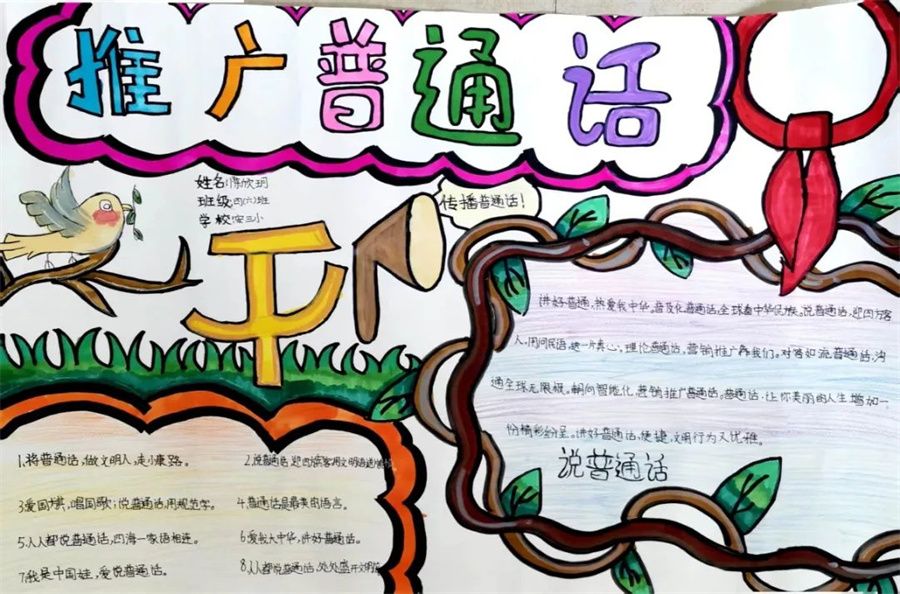 推广普通话
姓名:陈欣玥
班级:四(六)班
学校:安三小
传播普通话!
讲好普通,热爱我中华,普及化普通话,全球看中华民族。说普通话,迎四方客
人,用问民语,献一片真心。理论普通话,营销推广靠我们。对答如流普通话,沟
通全球无限极。朝向智能化,营销推广普通话。普通话,让你美丽的人生增加一
份精彩纷呈。讲好普通话,便捷,文明行为又优雅。
说普通话
1、将普通话,做文明人,走小康路。
2、说普通话,迎四方宾客用文明语
3、爱国旗,唱国歌;说普通话,用规范字。
4、普通话是最美的语言。
5、人人都说普通话,四海一家语相连。
6、爱我大中华,讲好普通话。
7、我是中国娃,爱说普通话。
8、人人都说普通话,处处盛开文明花